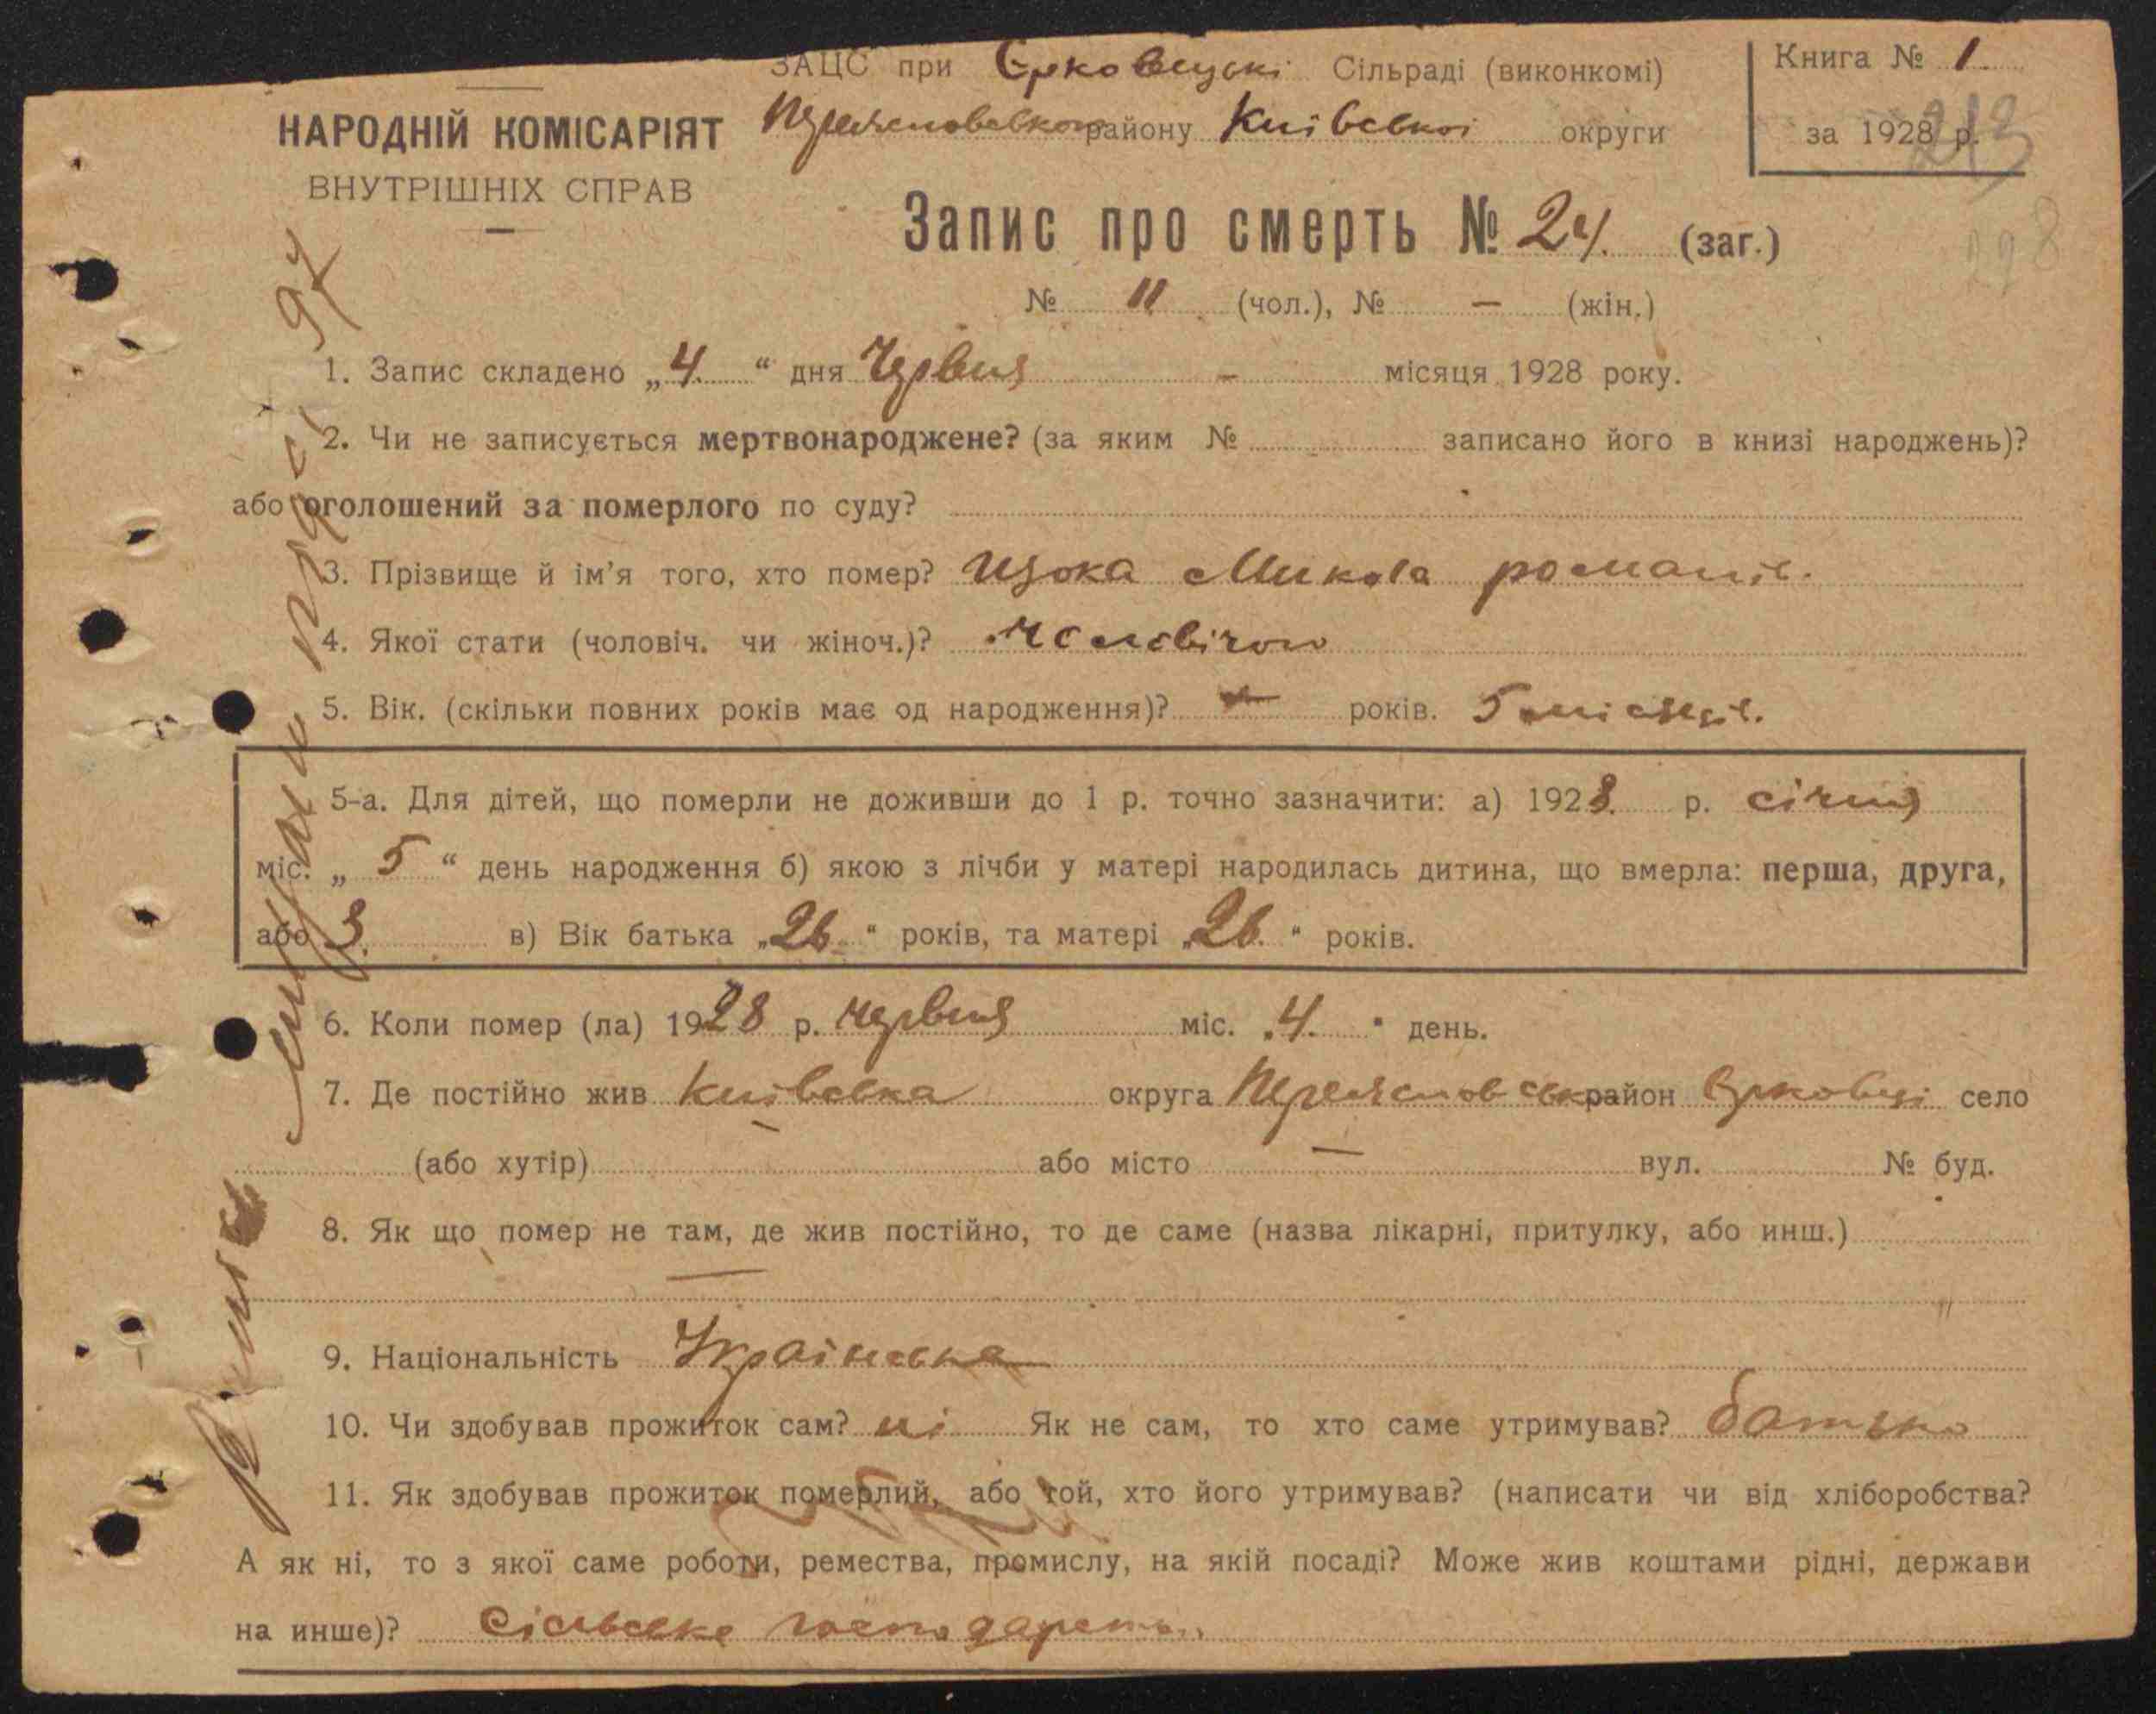 ЗАЦС при Єрковецькі Сільраді (виконкомі)
Книга № 1.
НАРОДНІЙ КОМІСАРІЯТ
Переяславської району Київської округи
за 1928 р.
213
ВНУТРІШНІХ СПРАВ
Запис про смерть № 24. (заг.)
№ 11 (чол.), № — (жін.)
1. Запис складено „4.“ дня Червня – місяця 1928 року.
2. Чи не записується мертвонароджене? (за яким № записано його в книзі народжень)?
або оголошений за померлого по суду?
3. Прізвище й ім'я того, хто помер? Микола романів.
4. Якої стати (чоловіч. чи жіноч.)? чоловічої
5. Вік. (скільки повних років має од народження)? років. 5 місяців.
5-а. Для дітей, що померли не доживши до 1 р. точно зазначити: а) 1928. р. січня
міс. „5“ день народження б) якою з лічби у матері народилась дитина, що вмерла: перша, друга,
або 3. в) Вік батька „26“ років, та матері „26.“ років.
6. Коли помер (ла) 1928 р. червня міс. „4.“ день.
7. Де постійно жив Київська округа Переяславськ район Єрковці село
(або хутір) — або місто — вул. № буд.
8. Як що помер не там, де жив постійно, то де саме (назва лікарні, притулку, або инш.)
—
9. Національність Українська
10. Чи здобував прожиток сам? ні Як не сам, то хто саме утримував? батько
11. Як здобував прожиток померлий, або той, хто його утримував? (написати чи від хліборобства?
А як ні, то з якої саме роботи, ремества, промислу, на якій посаді? Може жив коштами рідні, держави
на инше)? Сільське господарство